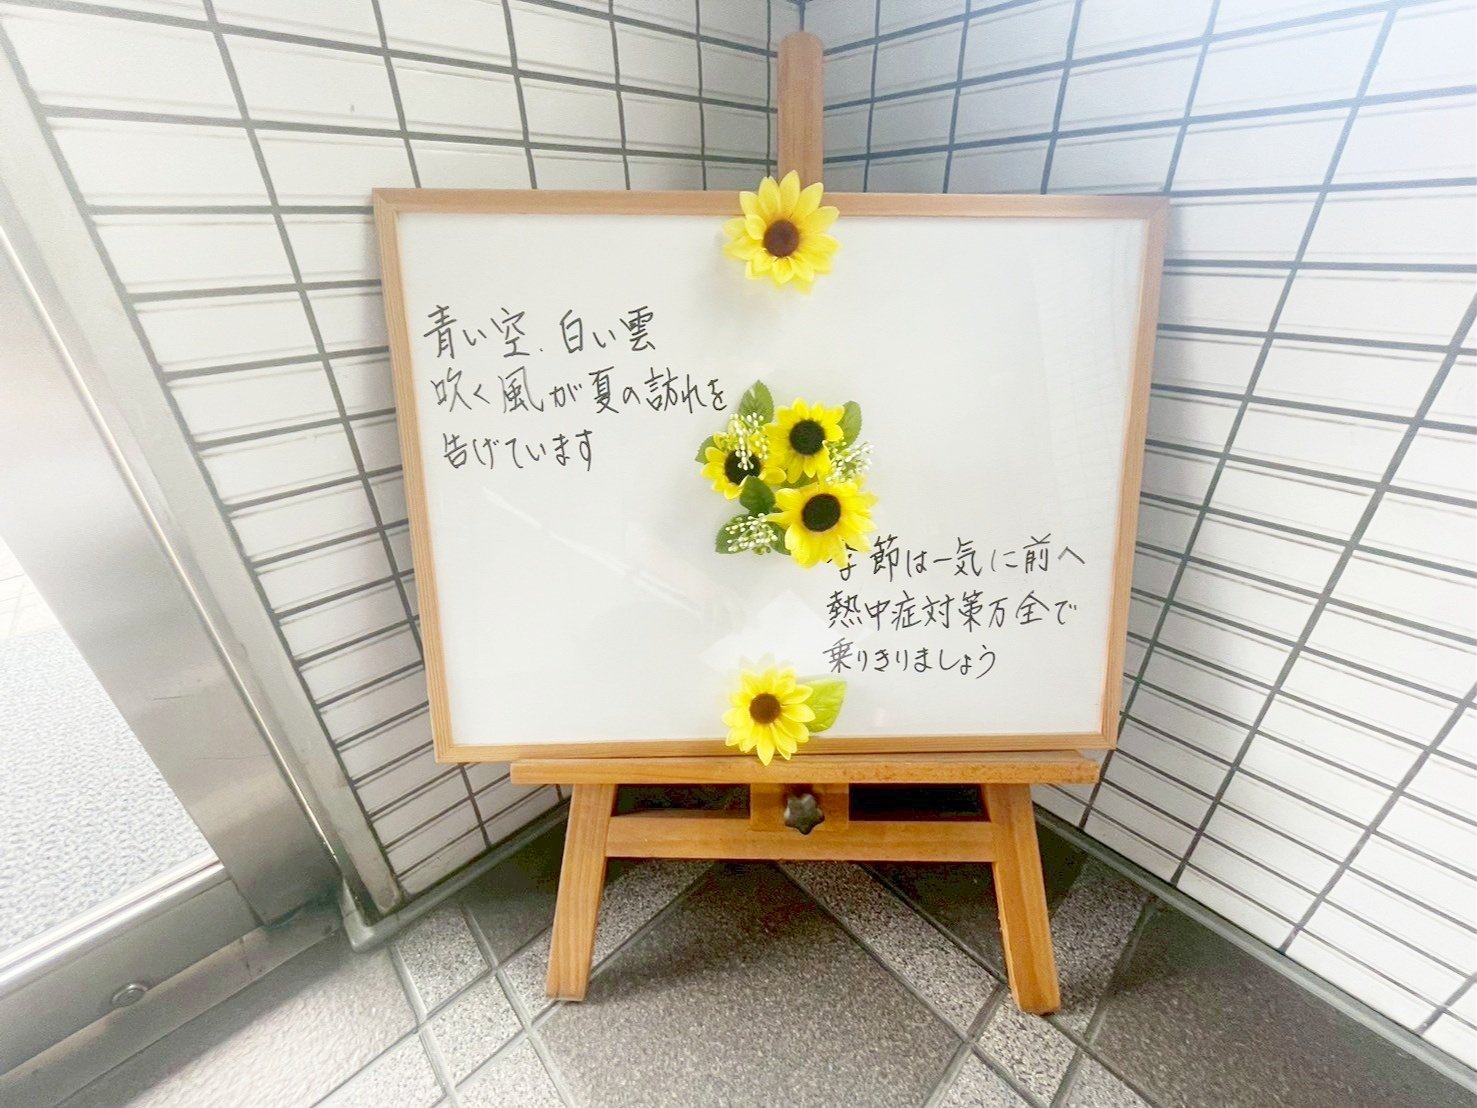 青い空、白い雲
吹く風が夏の訪れを
告げています
季節は一気に前へ
熱中症対策万全で
乗りきりましょう